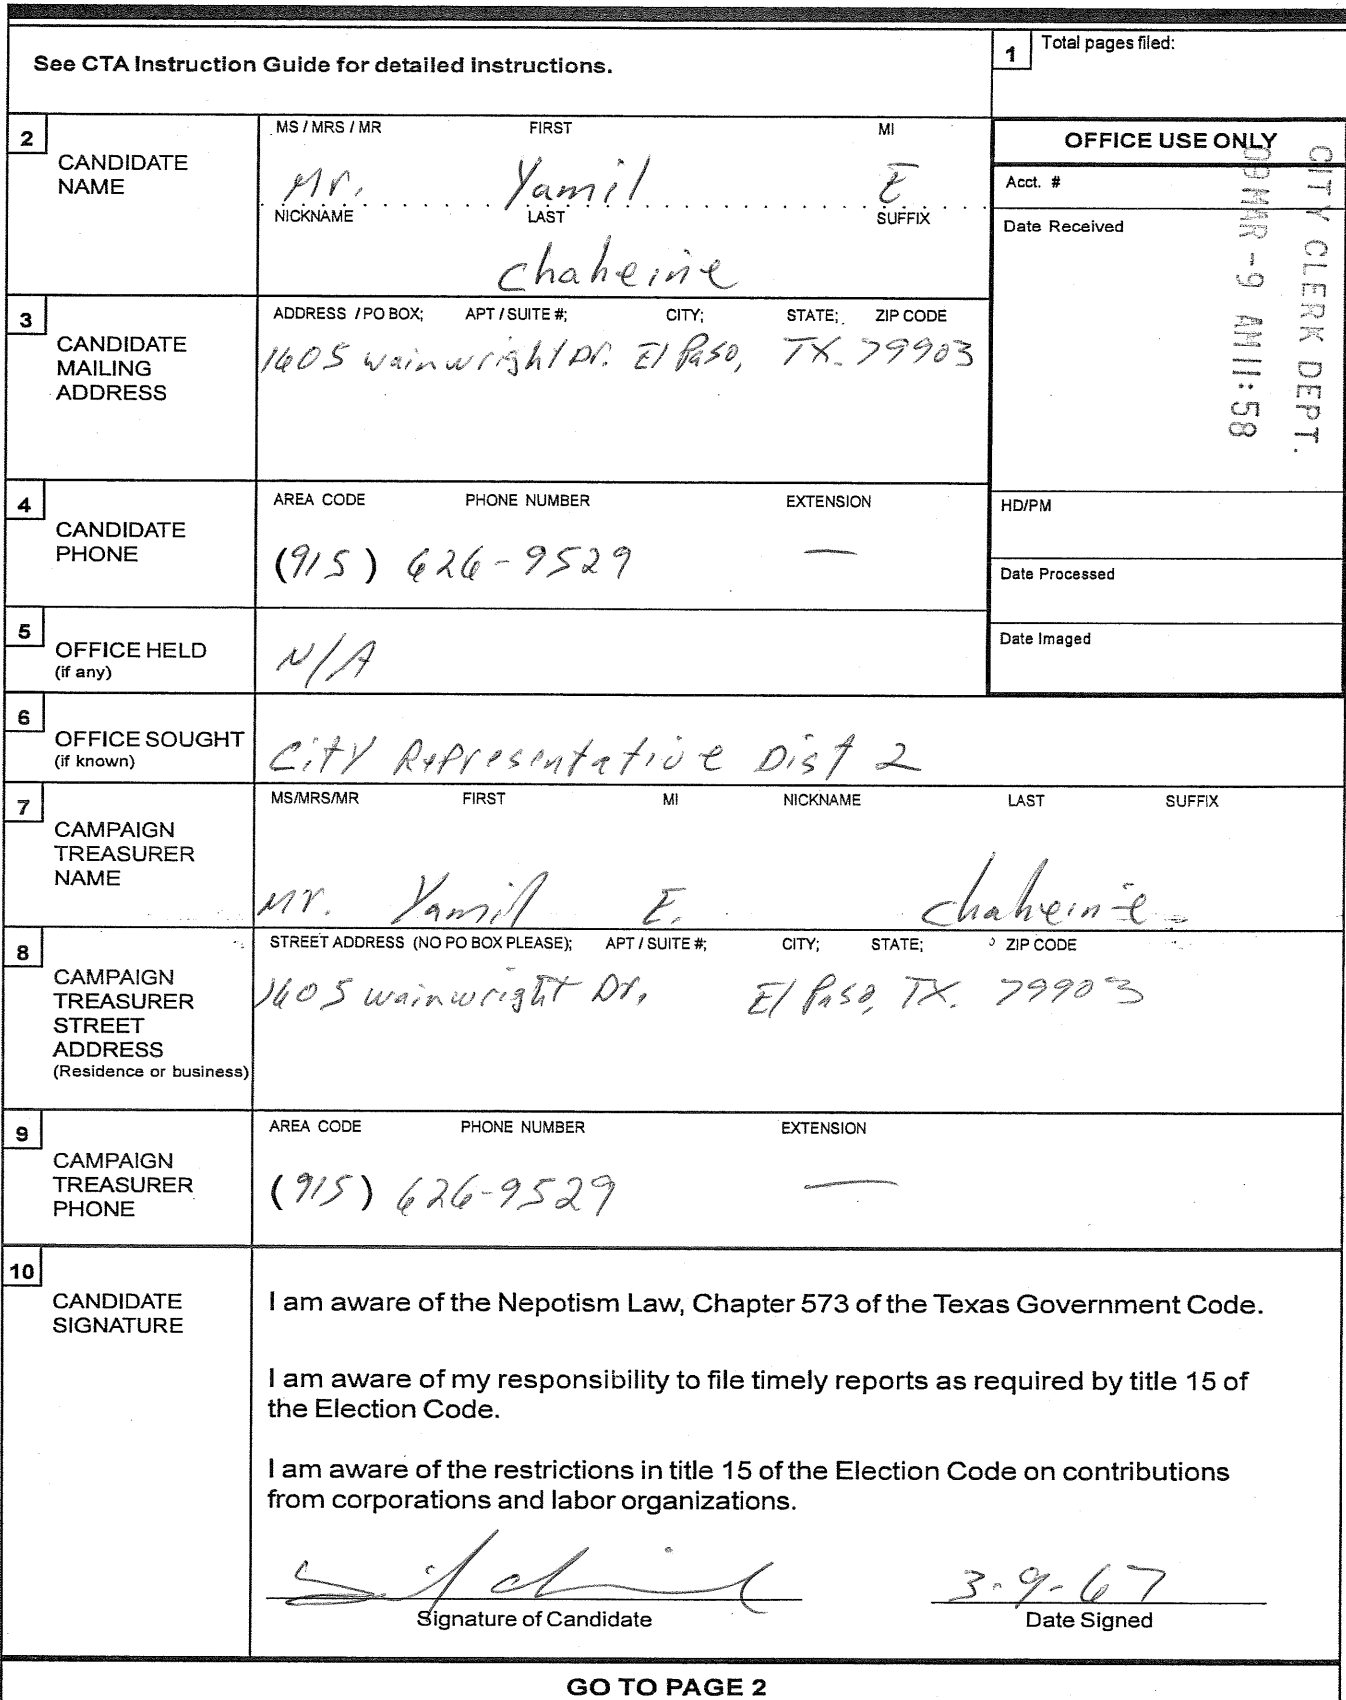 See CTA Instruction Guide for detailed instructions.
1 Total pages filed:
2 CANDIDATE NAME
MS / MRS / MR FIRST MI
Mr. Yamil E
NICKNAME LAST SUFFIX
Chaheine
OFFICE USE ONLY
Acct. #
Date Received
CITY CLERK DEPT.
09 MAR -9 AM 11:58
HD/PM
Date Processed
Date Imaged
3 CANDIDATE MAILING ADDRESS
ADDRESS / PO BOX; APT / SUITE #; CITY; STATE; ZIP CODE
1605 Wainwright Dr. El Paso, TX. 79903
4 CANDIDATE PHONE
AREA CODE PHONE NUMBER EXTENSION
(915) 626-9529 —
5 OFFICE HELD
(if any)
N/A
6 OFFICE SOUGHT
(if known)
City Representative Dist 2
7 CAMPAIGN TREASURER NAME
MS/MRS/MR FIRST MI NICKNAME LAST SUFFIX
Mr. Yamil E. Chaheine
8 CAMPAIGN TREASURER STREET ADDRESS
(Residence or business)
STREET ADDRESS (NO PO BOX PLEASE); APT / SUITE #; CITY; STATE; ZIP CODE
1605 Wainwright Dr. El Paso, TX. 79903
9 CAMPAIGN TREASURER PHONE
AREA CODE PHONE NUMBER EXTENSION
(915) 626-9529 —
10 CANDIDATE SIGNATURE
I am aware of the Nepotism Law, Chapter 573 of the Texas Government Code.
I am aware of my responsibility to file timely reports as required by title 15 of
the Election Code.
I am aware of the restrictions in title 15 of the Election Code on contributions
from corporations and labor organizations.
3-9-67
Signature of Candidate Date Signed
GO TO PAGE 2